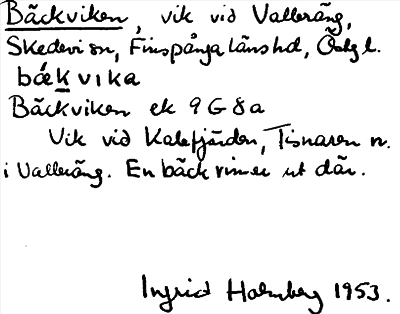 Bäckviken, vik vid Valleräng,
Skedevi sn, Finspånga länshd, Östg l.
bǽkvika
Bäckviken ek 9 G 8 a
Vik vid Kalvfjärden, Tisnaren n.
i Valleräng. En bäck rinner ut där.
Ingrid Holmberg 1953.